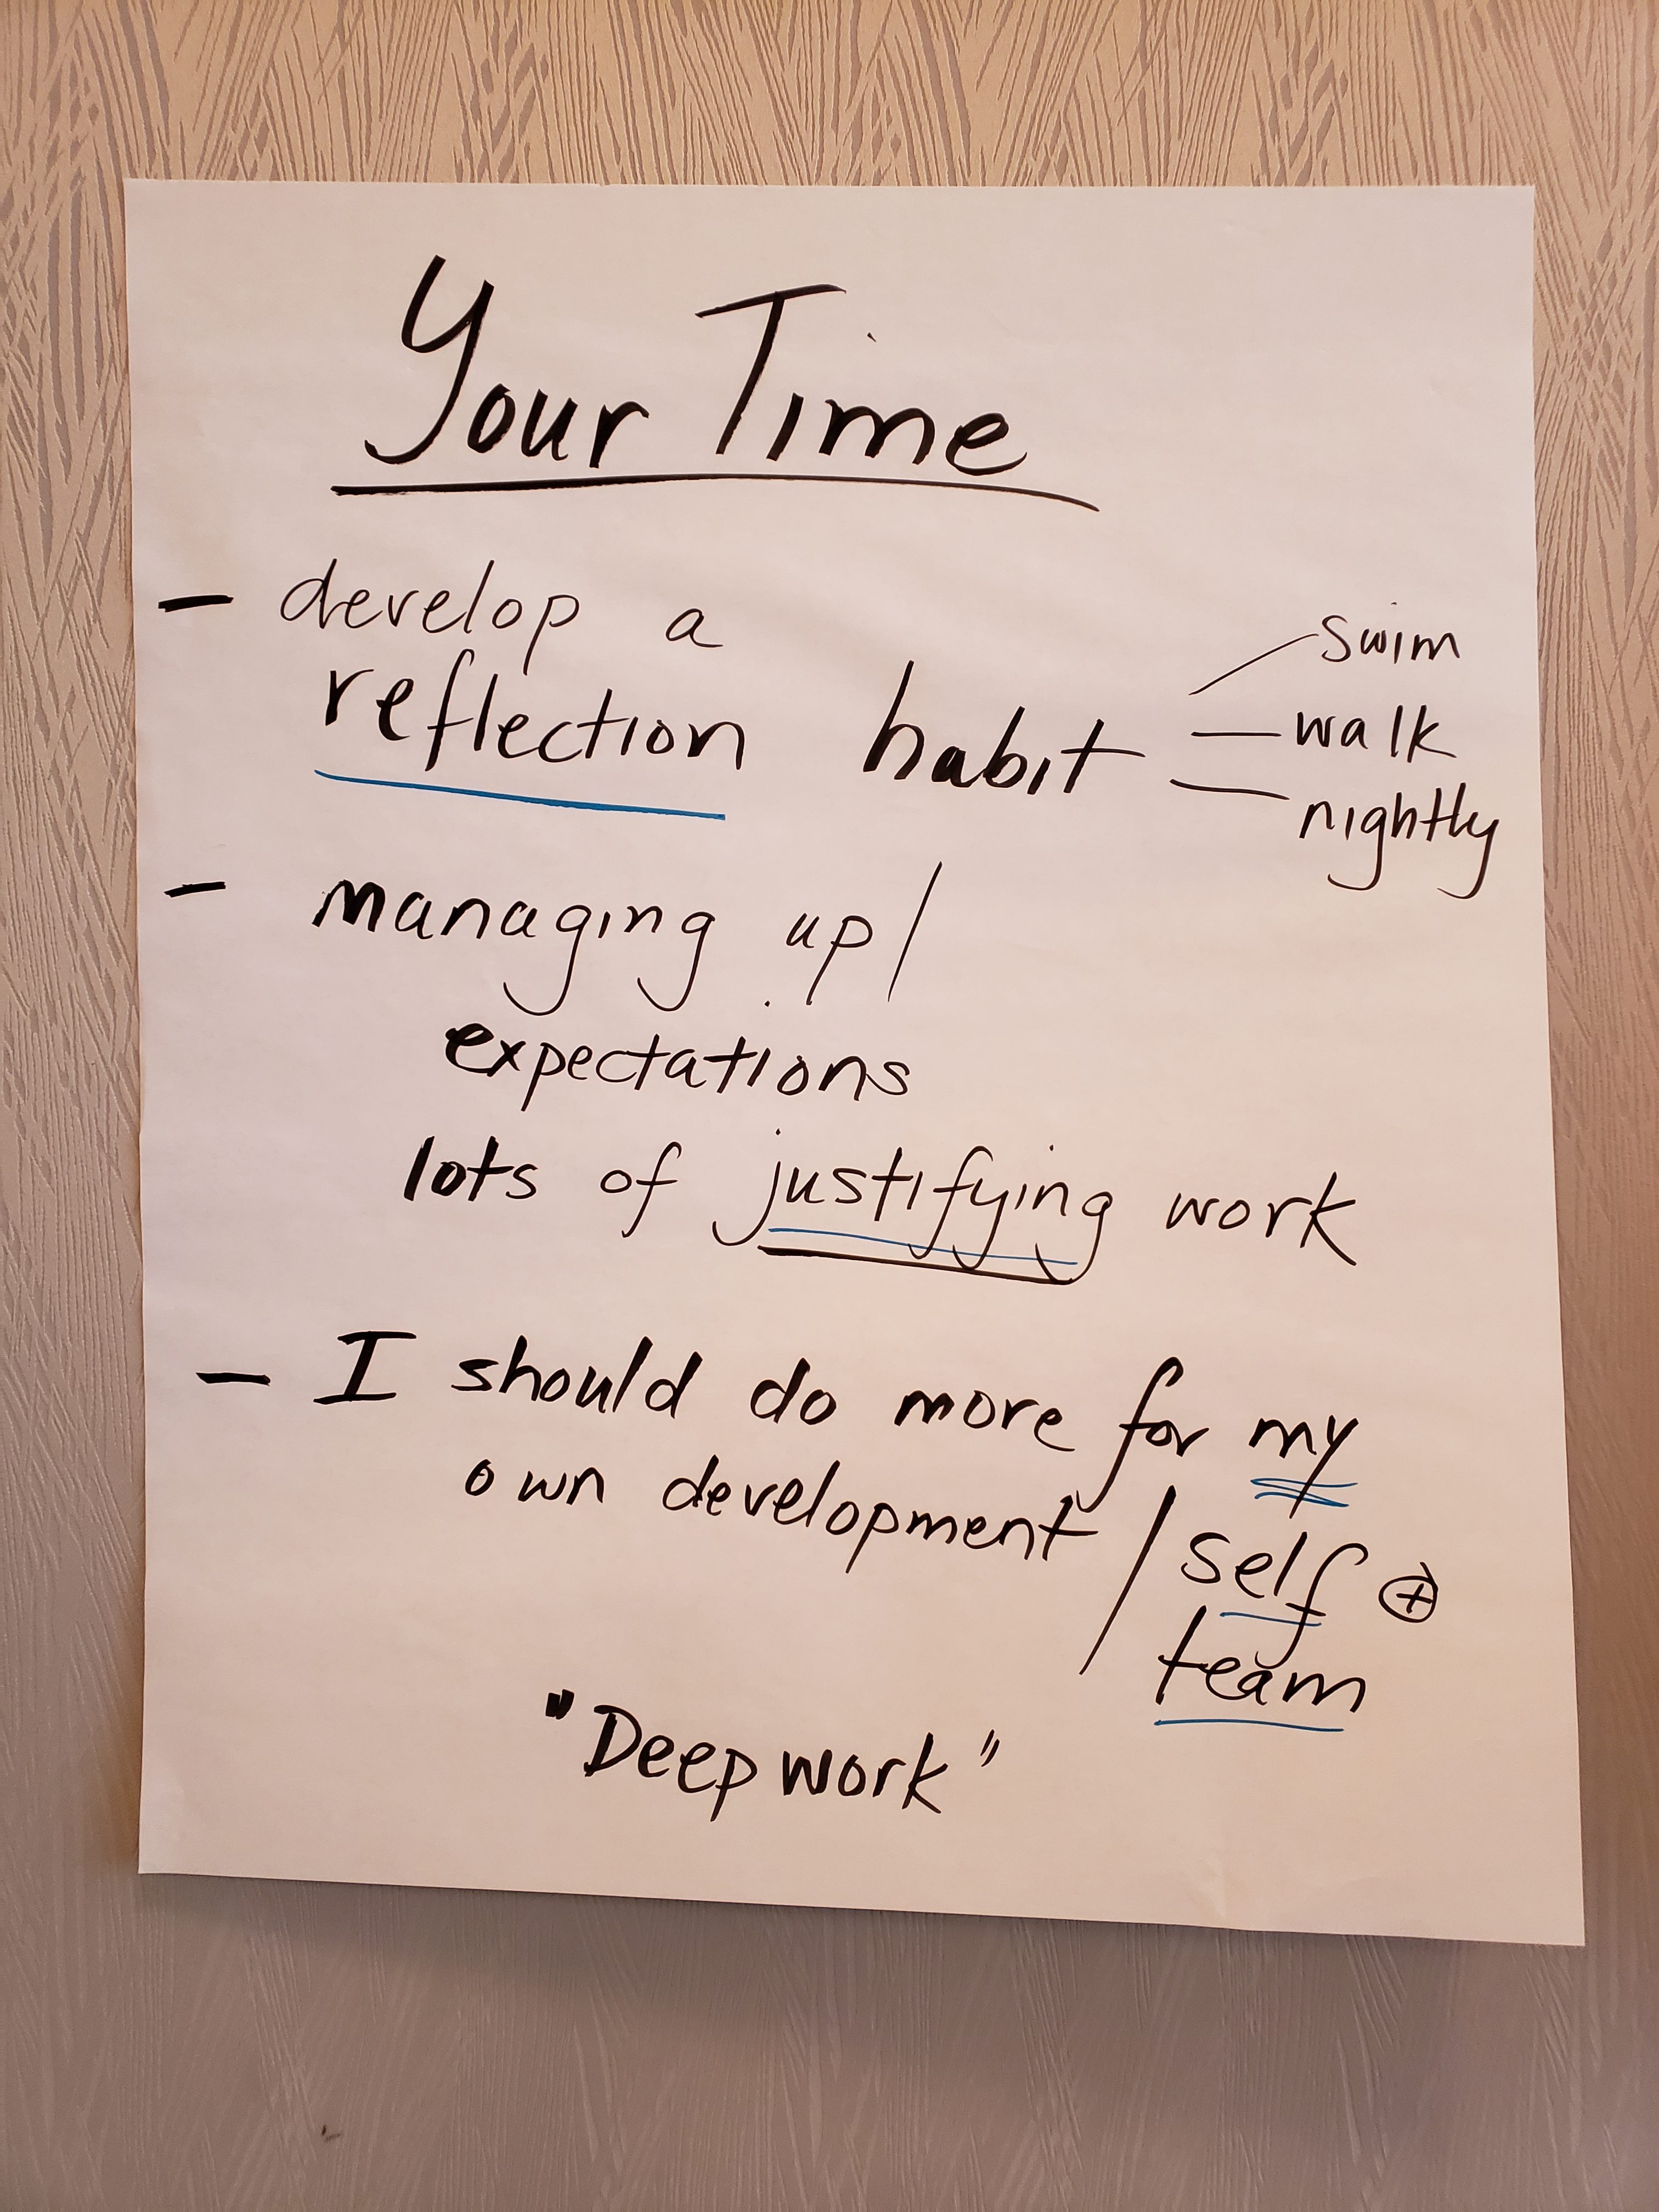 Your Time
- develop a
reflection habit
swim
walk
nightly
- managing up/
expectations
lots of justifying work
- I should do more for my
own development / self ⊕
team
"Deep work"